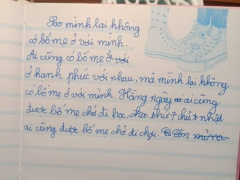 Sao mình lại không
có bố mẹ ở với mình.
Ai cũng có bố mẹ ở với
ở hạnh phúc với nhau, mà mình lại không
có bố mẹ ở với mình. Hàng ngày ai cũng
được bố mẹ chở đi học, thứ 7 chủ nhật
ai cũng được bố mẹ chở đi chơi. Còn